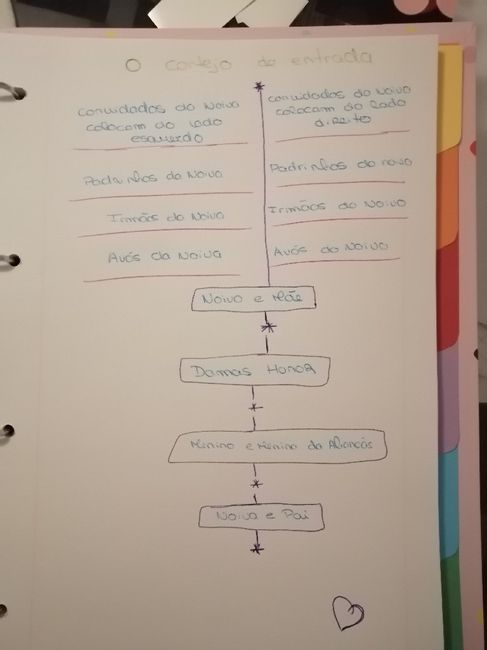 O cortejo de entrada
convidados do Noivo
colocam do lado
esquerdo
convidados do Noivo
colocam do lado
direito
Padrinhos do Noivo
Padrinhos do noivo
Irmãos do Noivo
Irmãos do Noivo
Avós da Noiva
Avós do Noivo
Noivo e Mãe
Damas Honor
Menino e Menina da Alianças
Noiva e Pai